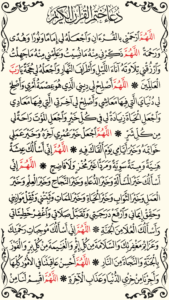 دعاء ختم القرآن الكريم
اللَّهُمَّ ارْحَمْنِي بِالْقُرْءَانِ وَاجْعَلْهُ لِي إِمَامًا وَنُورًا وَهُدًى
وَرَحْمَةً اللَّهُمَّ ذَكِّرْنِي مِنْهُ مَانَسِيتُ وَعَلِّمْنِي مِنْهُ مَاجَهِلْتُ
وَارْزُقْنِي تِلَاوَتَهُ آنَاءَ اللَّيْلِ وَأَطْرَافَ النَّهَارِ وَاجْعَلْهُ لِي حُجَّةً يَارَبَّ
الْعَالَمِينَ اللَّهُمَّ أَصْلِحْ لِي دِينِي الَّذِي هُوَ عِصْمَةُ أَمْرِي وَأَصْلِحْ
لِي دُنْيَايَ الَّتِي فِيهَا مَعَاشِي وَأَصْلِحْ لِي آخِرَتِي الَّتِي فِيهَا مَعَادِي
وَاجْعَلِ الْحَيَاةَ زِيَادَةً لِي فِي كُلِّ خَيْرٍ وَاجْعَلِ الْمَوْتَ رَاحَةً لِي
مِنْ كُلِّ شَرٍّ اللَّهُمَّ اجْعَلْ خَيْرَ عُمْرِي آخِرَهُ وَخَيْرَ عَمَلِي
خَوَاتِمَهُ وَخَيْرَ أَيَّامِي يَوْمَ أَلْقَاكَ فِيهِ اللَّهُمَّ إِنِّي أَسْأَلُكَ عِيشَةً
هَنِيَّةً وَمِيتَةً سَوِيَّةً وَمَرَدًّا غَيْرَ مُخْزٍ وَلَا فَاضِحٍ اللَّهُمَّ إِنِّي
أَسْأَلُكَ خَيْرَ الْمَسْأَلَةِ وَخَيْرَ الدُّعَاءِ وَخَيْرَ النَّجَاحِ وَخَيْرَ الْعِلْمِ وَخَيْرَ
الْعَمَلِ وَخَيْرَ الثَّوَابِ وَخَيْرَ الْحَيَاةِ وَخَيْرَ الْمَمَاتِ وَثَبِّتْنِي وَثَقِّلْ مَوَازِينِي
وَحَقِّقْ إِيمَانِي وَارْفَعْ دَرَجَتِي وَتَقَبَّلْ صَلَاتِي وَاغْفِرْ خَطِيئَاتِي
وَأَسْأَلُكَ الْعُلَا مِنَ الْجَنَّةِ اللَّهُمَّ إِنِّي أَسْأَلُكَ مُوجِبَاتِ رَحْمَتِكَ
وَعَزَائِمَ مَغْفِرَتِكَ وَالسَّلَامَةَ مِنْ كُلِّ إِثْمٍ وَالْغَنِيمَةَ مِنْ كُلِّ بِرٍّ وَالْفَوْزَ
بِالْجَنَّةِ وَالنَّجَاةَ مِنَ النَّارِ اللَّهُمَّ أَحْسِنْ عَاقِبَتَنَا فِي الْأُمُورِ كُلِّهَا
وَأَجِرْنَا مِنْ خِزْيِ الدُّنْيَا وَعَذَابِ الْآخِرَةِ اللَّهُمَّ اقْسِمْ لَنَا مِنْ